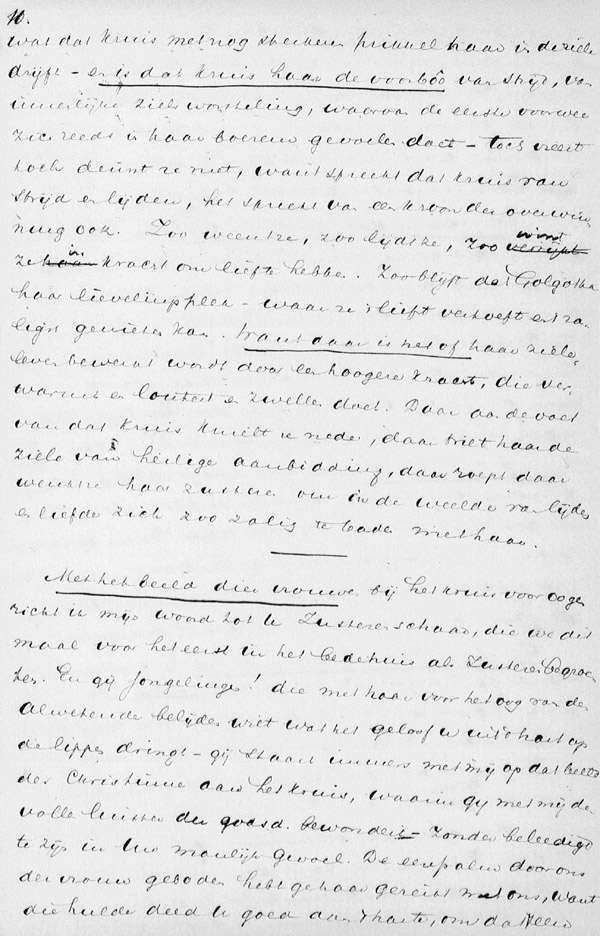 10.
wat dat kruis met nog sterkeren prikkel haar in de ziele
drijft – en is dat kruis haar de voorbôo van strijd, van
innerlijke zielsworsteling, waarvan de eerste voorwee
zich reeds in haar boezem gevoelen doet – toch vreest
toch deinst ze niet, want spreekt dat kruis van
strijd en lijden, het spreekt van een kroon der overwin
ning ook. Zoo weent ze, zoo lijdt ze, zoo wint
ze in kracht om liefte hebbe. Zoo blijft dat Golgotha
haar lievelingsplek – waar ze 't liefst vertoeft en 't za-
ligst genieten kan. Want daar is het of haar ziele-
leven bewerkt wordt door een hoogere kracht, die ver-
warmt en loutert en zwellen doet. Daar aan de voet
van dat kruis knielt ze neder, daar trilt haar de
ziele van heilige aanbidding, daar roept daar
wenkt ze haar zusteren om in de weelde van lijden
en liefde zich zoo zalig te baden met haar.
Met het beeld dier vrouwen bij het kruis voor oogen
richt ik mijn woord tot U Zusterenschaar, die we dit
maal voor het eerst in het bedehuis als Zusteren begroe-
ten. En gij Jongelingen! die met haar voor het oog van den
Alwetende belijden wilt wat het geloof u uit 't hart op
de lippen dringt – gij staart immers met mij op dat beeld
der Christinne aan het kruis, waarin gij met mij de
volle luister der godsd. bewondert – zonder beleedigd
te zijn in Uw manlijk gevoel. De eerepalm door ons
der vrouw geboden hebt ge haar gereikt met ons, want
die hulde deed U goed aan 't harte, om dat Uw